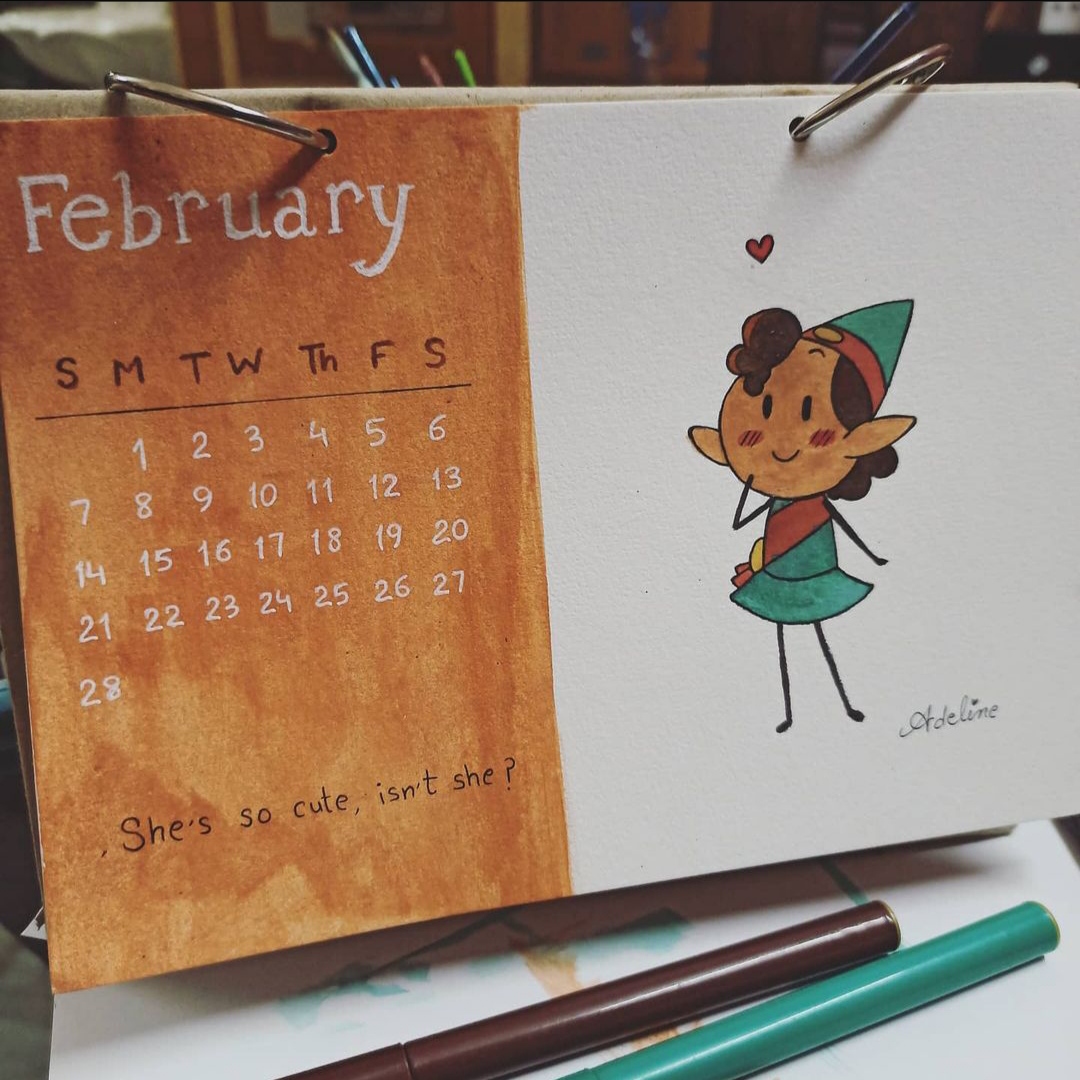 February
S M T W Th F S
1 2 3 4 5 6
7 8 9 10 11 12 13
14 15 16 17 18 19 20
21 22 23 24 25 26 27
28
She's so cute, isn't she?
Adeline